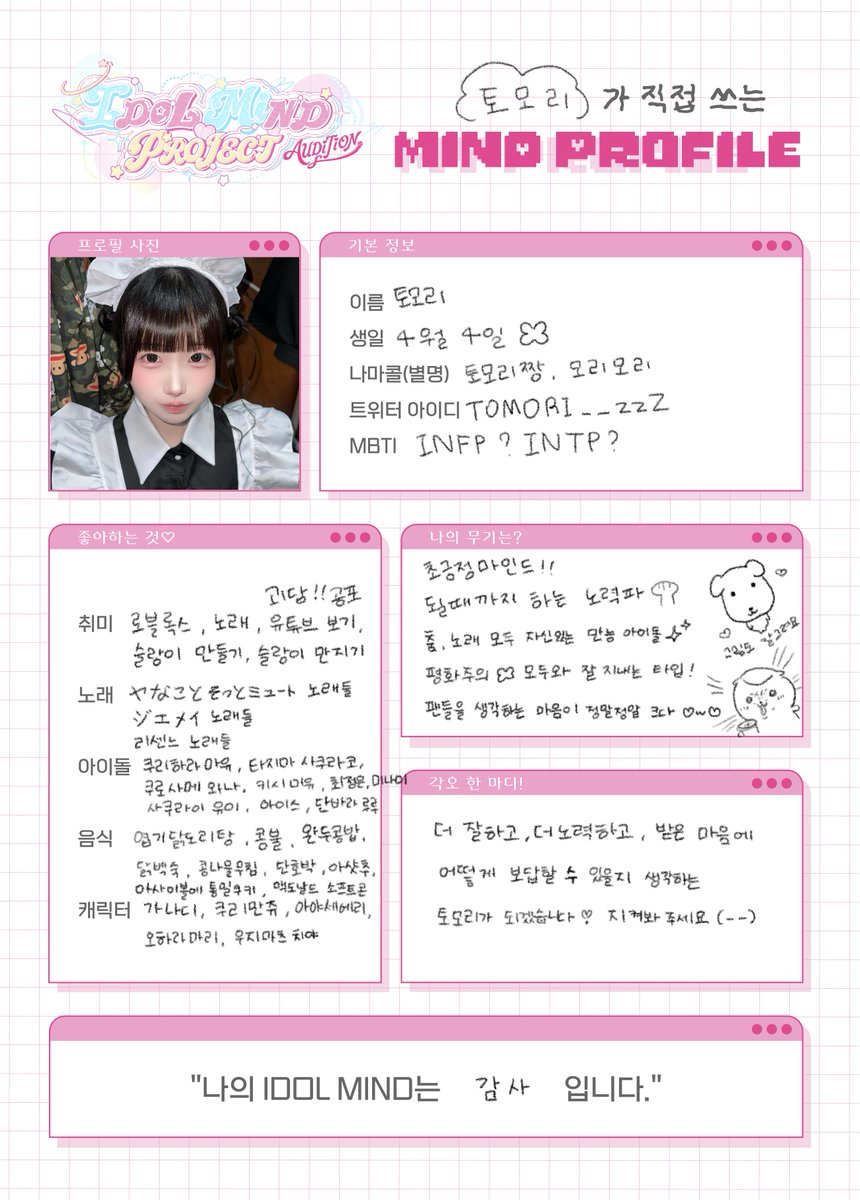 IDOL MIND
PROJECT AUDITION
토모리 가 직접 쓰는
MIND PROFILE
프로필 사진
기본 정보
이름 토모리
생일 4월 4일
나마콜(별명) 토모리짱, 모리모리
트위터 아이디 TOMORI__zzZ
MBTI INFP? INTP?
좋아하는 것♡
괴담!! 공포
취미 로블록스, 노래, 유튜브 보기,
슬랑이 만들기, 슬랑이 만지기
노래 ヤなことそっとミュート 노래들
ジエメイ 노래들
리센느 노래들
아이돌 쿠리하라 마유, 타지마 사쿠라코,
쿠로사메 와나, 키시 미유, 최정은, 미나미
사쿠라이 유이, 아이스, 단바라 루루
음식 엽기닭도리탕, 콩불, 완두콩밥,
닭백숙, 콩나물무침, 단호박, 아샷추,
아사이볼에 통밀쿠키, 맥도날드 소프트콘
캐릭터 가나디, 쿠리만쥬, 아야세 에리,
오하라 마리, 우지마츠 치야
나의 무기는?
초긍정마인드!!
될때까지 하는 노력파
춤, 노래 모두 자신있는 만능 아이돌
평화주의 모두와 잘 지내는 타입!
팬들을 생각하는 마음이 정말정말 크다 ♡ω♡
그림도 잘그려요
각오 한 마디!
더 잘하고, 더 노력하고, 받은 마음에
어떻게 보답할 수 있을지 생각하는
토모리가 되겠습니다♡ 지켜봐 주세요 (--)
"나의 IDOL MIND는 감사 입니다."